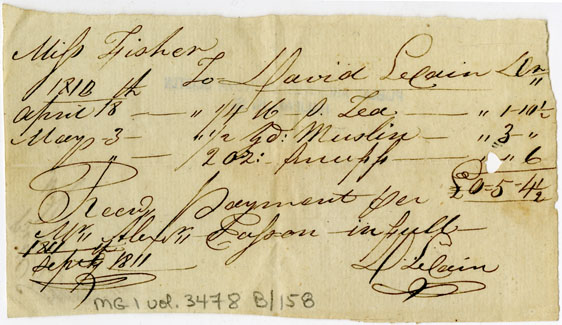 Miss Fisher
1810 To David LeCain Dr
April 18th — " 1/4 lb - Tea — " 1-10½
May - 3 — " ½ yd: Muslin — " 3 - "
" — 2 oz: Snuff — " " 6
£0-5-4½
Recd Payment per
Mr. Alexr Casson in full
Septr 1811
D LeCain
MG 1 vol. 3478 B/158